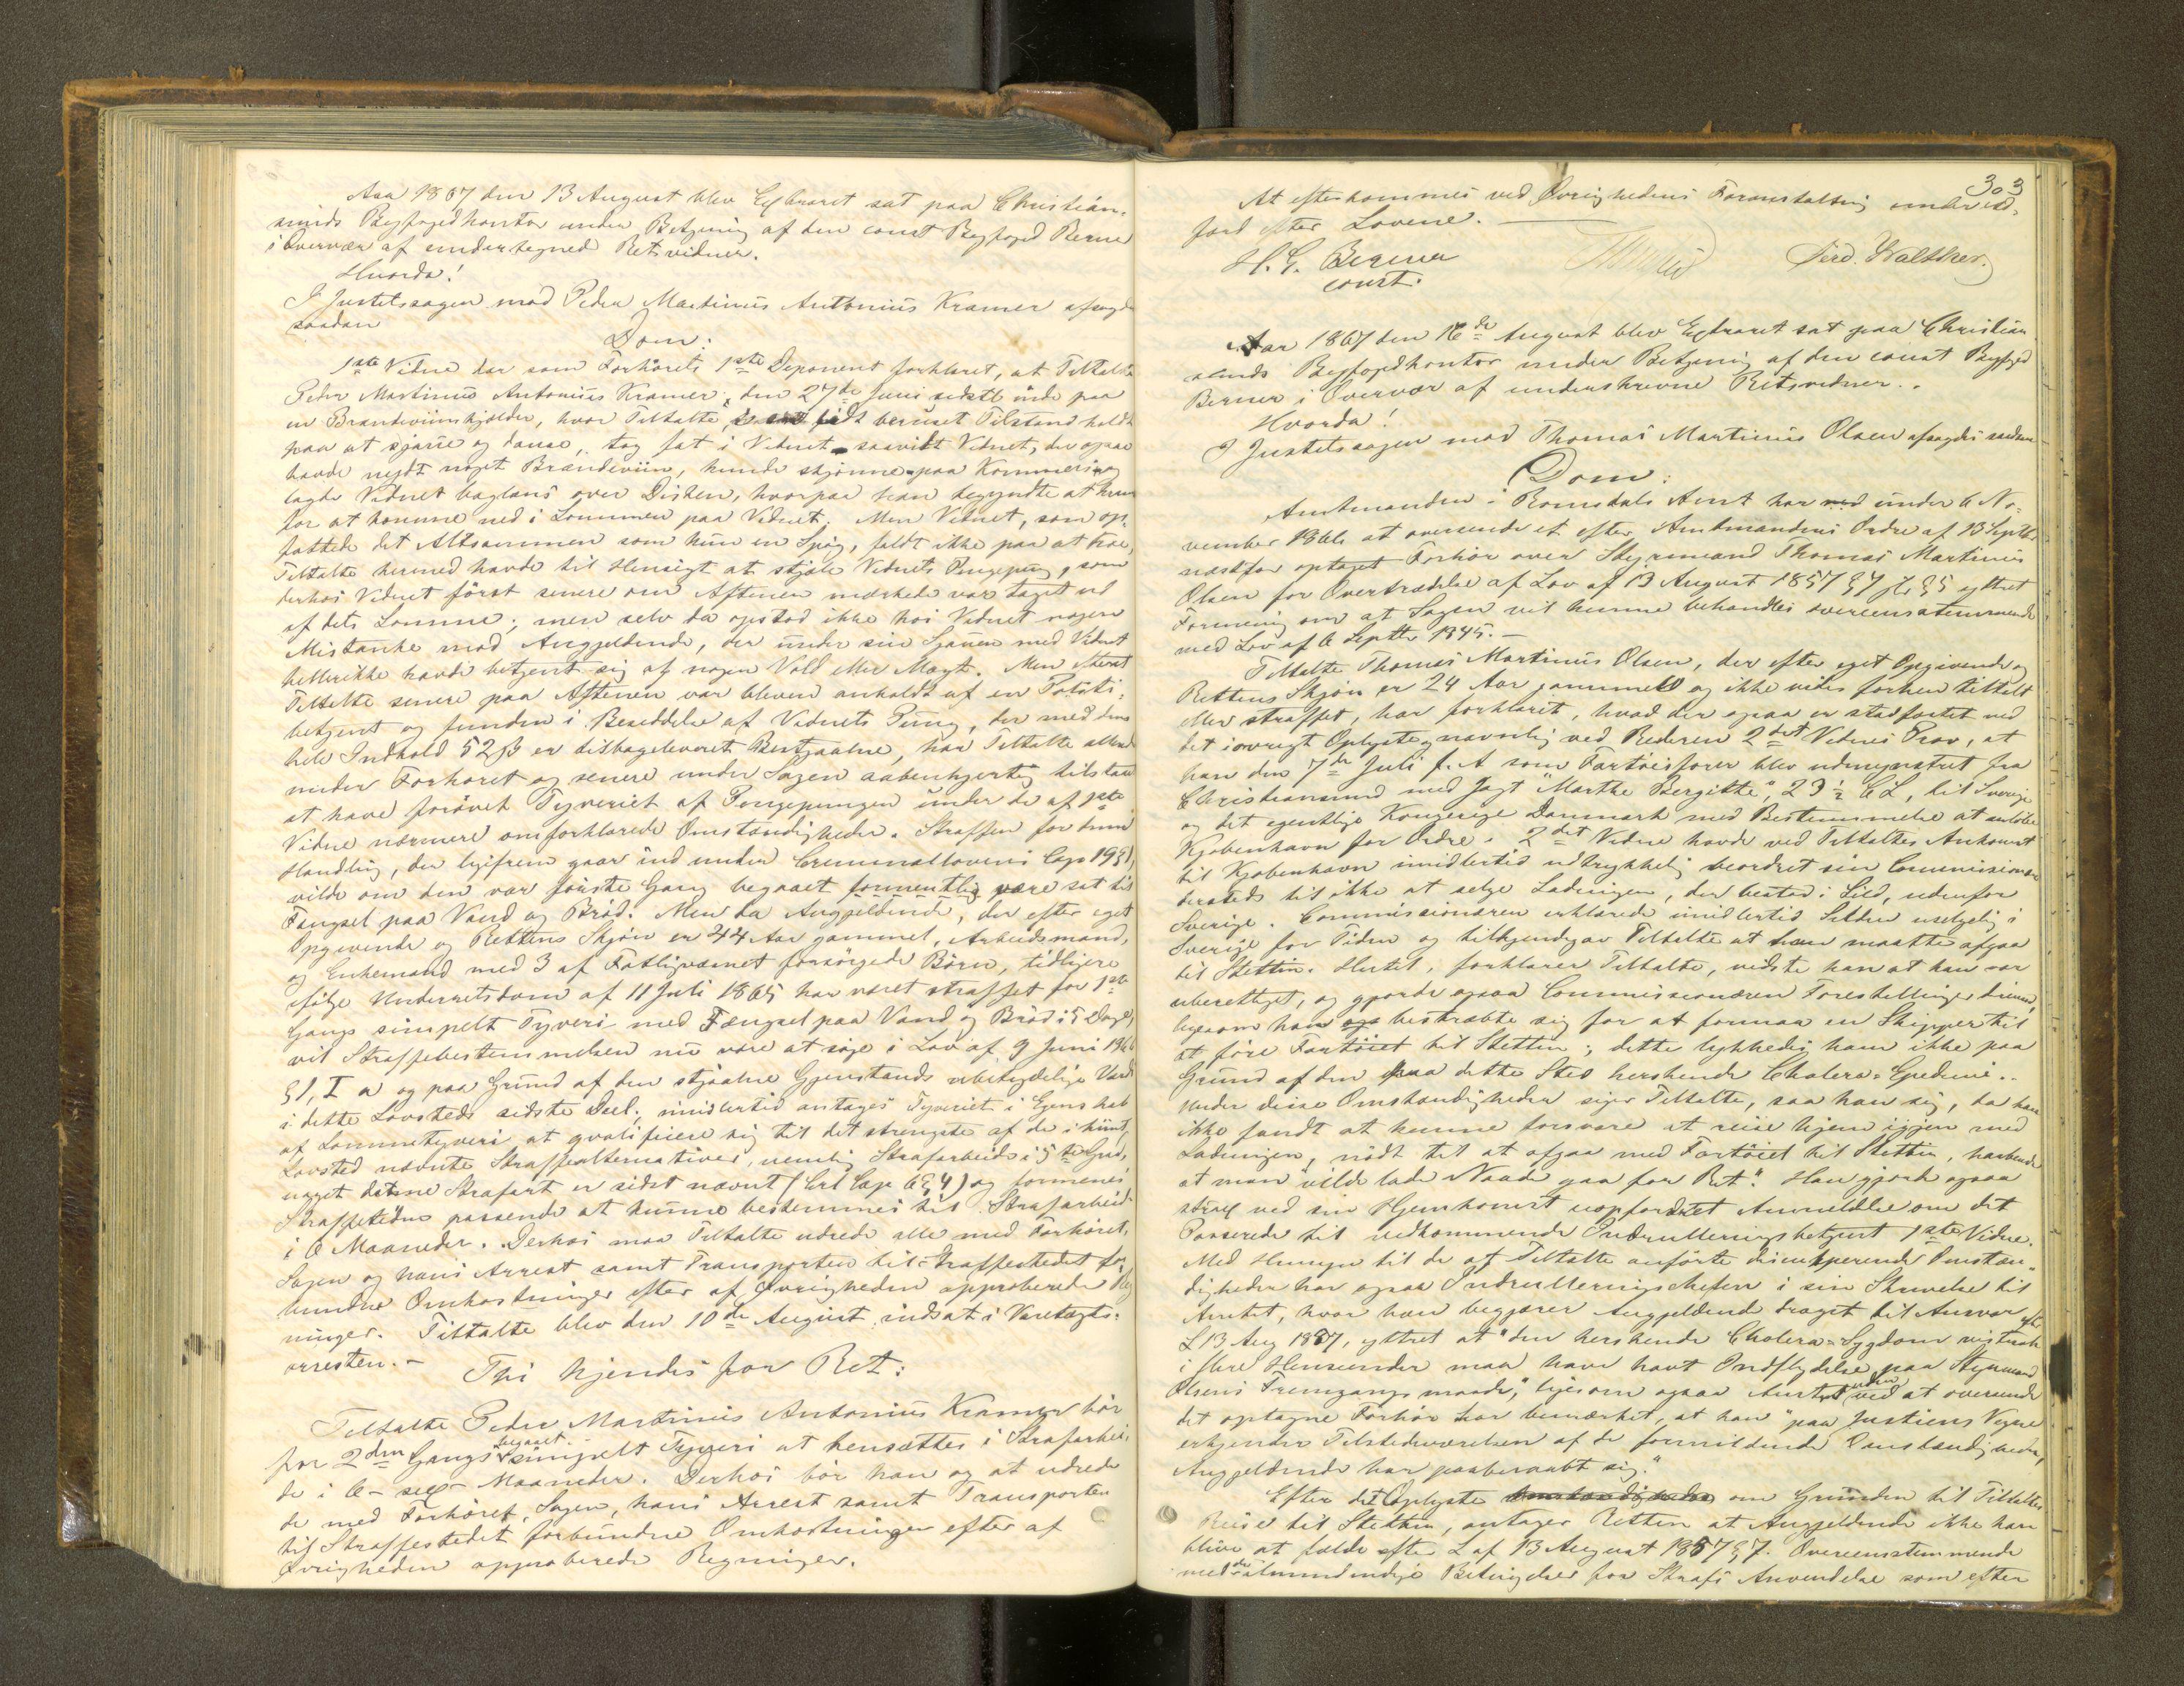 Aar 1867 den 13 August blev Extraret sat paa Christian-
sunds Byfogedkontor under Betjening af den const Byfoged Berner
i Overvær af undertegnede Retsvidner.
Hvorda!
I Justitssagen mod Peder Martinus Antonius Kramer afsagdes
saadan
Dom:
1ste Vidne har som Forhörets 1ste Deponent forklaret, at Tiltalte
Peder Martinus Antonius Kramer, den 27de Juni sidstl. inde paa
en Brændeviinskjelder, hvor Tiltalte, i beruset Tilstand holdt
paa at sjaue og danse, tog fat i Vidnet saavidt Vidnet, der ogsaa
havde nydt noget Brændeviin, kunde skjönne paa Kommers og
lagde Vidnet baglæns over Disken, hvorpaa han begyndte at
for at komme ned i Lommen paa Vidnet. Men Vidnet, som op-
fattede det Altsammen som kun en Spög, faldt ikke paa at troe,
Tiltalte hermed havde til Hensigt at stjæle Vidnets Pengepung, som
derhos Vidnet först senere om Aftenen mærkede var taget ud
af dets Lomme; men selv da opstod ikke hos Vidnet nogen
Mistanke mod Angjeldende, der under sin Sjauen med Vidnet
hellerikke havde betjent sig af nogen Vold eller Magt. Men efterat
Tiltalte senere paa Aftenen var bleven anholdt af en Politi-
betjent og funden i Besiddelse af Vidnets Pung, der med dens
hele Indhold 52 ß er tilbageleveret Bestjaalne, har Tiltalte
under Forhöret og senere under Sagen aabenhjertig tilstaaet
at have forövet Tyveriet af Pengepungen under de af 1ste
Vidne nærmere omforklarede Omstændigheder. Straffen for denne
Handling, der ligefrem gaar ind under Criminallovens Cap 19 § 1,
vilde om den var förste Gang begaaet formentlig være sat til
Fængsel paa Vand og Bröd. Men da Angjeldende, der efter eget
Opgivende og Rettens Skjön er 44 Aar gammel, Arbeidsmand,
og Enkemand med 3 af Fattigvæsnet forsörgede Börn, tidligere
ifölge Underretsdom af 11 Juli 1865 har været straffet for 1ste
Gangs simpelt Tyveri med Fængsel paa Vand og Bröd i 5 Dage,
vil Straffebestemmelsen nu være at söge i Lov af 9 Juni 1866
§ 1, I a og paa Grund af den stjaalne Gjenstands ubetydelige Værdi
i dette Lovsteds sidste Deel; imidlertid antages Tyveriet i Egenskab
af Lommetyveri at qvalificere sig til det strengeste af de i
Lovsted nævnte Straffealternativer, nemlig Strafarbeide i 5te Grad,
uagtet denne Strafart er sidst nævnt (Crl Cap 6 § 4) og formenes
Straffetiden passende at kunne bestemmes til Strafarbeide
i 6 Maaneder. Derhos maa Tiltalte udrede alle med Forhöret,
Sagen og hans Arrest samt Transporten til Straffestedet for-
bundne Omkostninger efter af Övrigheden approberede Reg-
ninger. Tiltalte blev den 10de August indsat i Varetægts-
arresten.-
Thi kjendes for Ret:
Tiltalte Peder Martinus Antonius Kramer bör
for 2den Gangs begaaet simpelt Tyveri at hensættes i Strafarbei-
de i 6 - sex - Maaneder. Derhos bör han og at udrede
de med Forhöret, Sagen, hans Arrest samt Transporten
til Straffestedet forbundne Omkostninger efter af
Övrigheden approberede Regninger.
303
At efterkommes ved Övrighedens Foranstaltning under Ad-
færd efter Lovene.
H. G. Berner
const.
Ferd. Walther.
Aar 1867 den 16de August blev Extraret sat paa Christian
sunds Byfogedkontor under Betjening af den const Byfoged
Berner i Overvær af underskrevne Retsvidner.
Hvorda!
I Justitssagen mod Thomas Martinus Olsen afsagdes saadan
Dom:
Amtmanden i Romsdals Amt har under 6 No-
vember 1866 at oversende et efter Amtmandens Ordre af 13 Septbr
næstfor optaget Forhör over Styrmand Thomas Martinus
Olsen for Overtrædelse af Lov af 13 August 1857 § 7 jfr § 5 yttret
Formening om at Sagen vil kunne behandles overeensstemmende
med Lov af 6 Septbr 1845.-
Tiltalte Thomas Martinus Olsen, der efter eget Opgivende og
Rettens Skjön er 24 Aar gammel og ikke vides forhen tiltalt
eller straffet, har forklaret, hvad der ogsaa er stadfæstet ved
det iövrigt Oplyste, navnlig ved Rederen 2det Vidnes Prov, at
han den 7de Juli f. A som Fartöisförer blev udmynstret fra
Christiansund med Jagt "Marthe Bergitte", 23 1/2 CL, til Sverige
og det egentlige Kongerige Danmark med Bestemmelse at anlöbe
Kjöbenhavn for Ordre. 2det Vidne havde ved Tiltaltes Ankomst
til Kjöbenhavn imidlertid udtrykkelig beordret sin Commissionær
dersteds til ikke at selge Ladningen, der bestod i Sild, udenfor
Sverige. Commissionæren erklærede imidlertid Silden uselgelig i
Sverige for Tiden og tilkjendegav Tiltalte at han maatte afgaa
til Stettin. Hertil, forklarer Tiltalte, vidste han at han var
uberettiget, og gjorde ogsaa Commissionæren Forestillinger derom,
ligesom han bestræbte sig for at formaa en Skipper til
at före Fartöiet til Stettin; dette lykkedes ham ikke paa
Grund af den paa dette Sted herskende Cholera-Epedemi.
Under disse Omstændigheder siger Tiltalte, saa han sig, da han
ikke fandt at kunne forsvare at reise hjem igjen med
Ladningen, nödt til at afgaa med Fartöiet til Stettin, haabende
at man "vilde lade Naade gaa for Ret". Han gjorde ogsaa
strax ved sin Hjemkomst uopfordret Anmeldelse om det
Passerede til vedkommende Indrulleringsbetjent 1ste Vidne.
Med Hensyn til de af Tiltalte anförte disculperende Omstæn-
digheder har ogsaa Indrulleringschefen i sin Skrivelse til
Amtet, hvor han begjærer Angjeldende draget til Ansvar efter
L 13 Aug 1857, yttret at "den herskende Cholera-Sygdom vistnok
i flere Henseender maa have havt Indflydelse paa Styrmand
Olsens Fremgangsmaade", ligesom ogsaa Amtet ved at oversende
det optagne Forhör har bemærket, at han "paa Justitiens Vegne
erkjender Tilstedeværelsen af de formildende Omstændigheder,
Angjeldende har paaberaabt sig."
Efter det Oplyste om Grunden til Tiltaltes
Reise til Stettin, antager Retten at Angjeldende ikke kan
blive at fælde efter L af 13 August 1857 § 7. Overeensstemmende
med de almindelige Betingelser for Strafs Anvendelse som efter